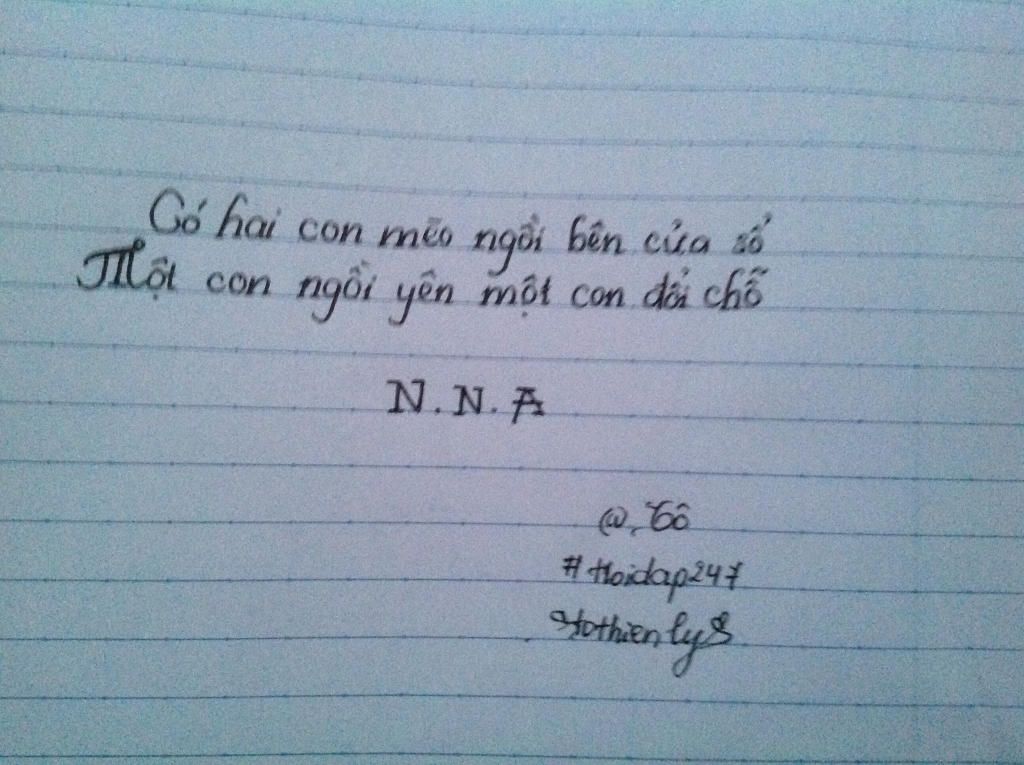 Có hai con mèo ngồi bên cửa sổ
Một con ngồi yên một con đổi chỗ
N.N.A
@. Tô
#Hoidap247
tothienly8